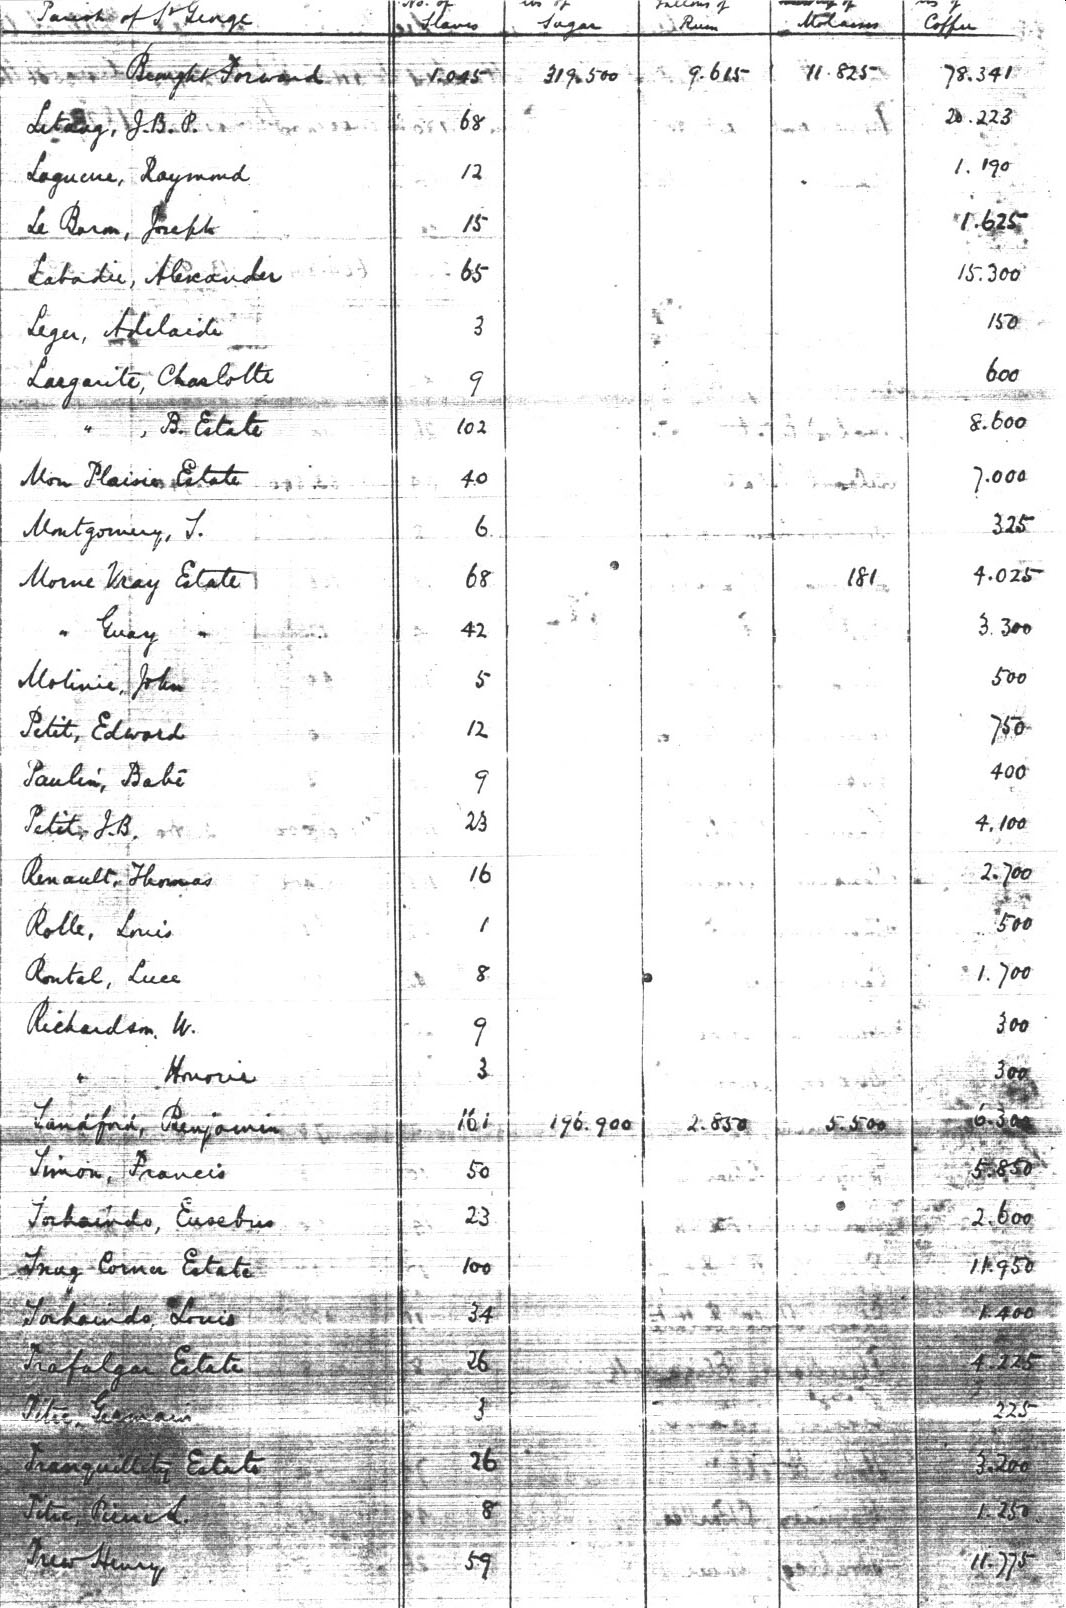 Parish of St George No. of Slaves lbs of Sugar Gallons of Rum of Molasses lbs of Coffee
Brought Forward 1.045 319.500 9.615 11.825 78.341
Letang, J.B.P. 68 20.223
Laguerre, Raymond 12 1.190
Le Baron, Joseph 15 1.625
Labadie, Alexander 65 15.300
Leger, Adelaide 3 150
Largarite, Charlotte 9 600
" , B. Estate 102 8.600
Mon Plaisir Estate 40 7.000
Montgomery, S. 6 325
Morne Vray Estate 68 181 4.025
" Guay " 42 3.300
Molinie, John 5 500
Petit, Edward 12 750
Paulin, Babé 9 400
Petit, J.B. 23 4.100
Renault, Thomas 16 2.700
Rolle, Louis 1 500
Rontal, Luce 8 1.700
Richardson, W. 9 300
" Honorie 3 300
Sandford, Benjamin 161 196.900 2.850 5.500 6.300
Simon, Francis 50 5.850
Sorhaindo, Eusebus 23 2.600
Snug Corner Estate 100 11.950
Sorhaindo, Louis 34 1.400
Trafalgar Estate 26 4.225
Titre, Germain 3 225
Tranquillity Estate 26 3.200
Titre, Pierre L. 8 1.250
Trew Henry 59 11.775